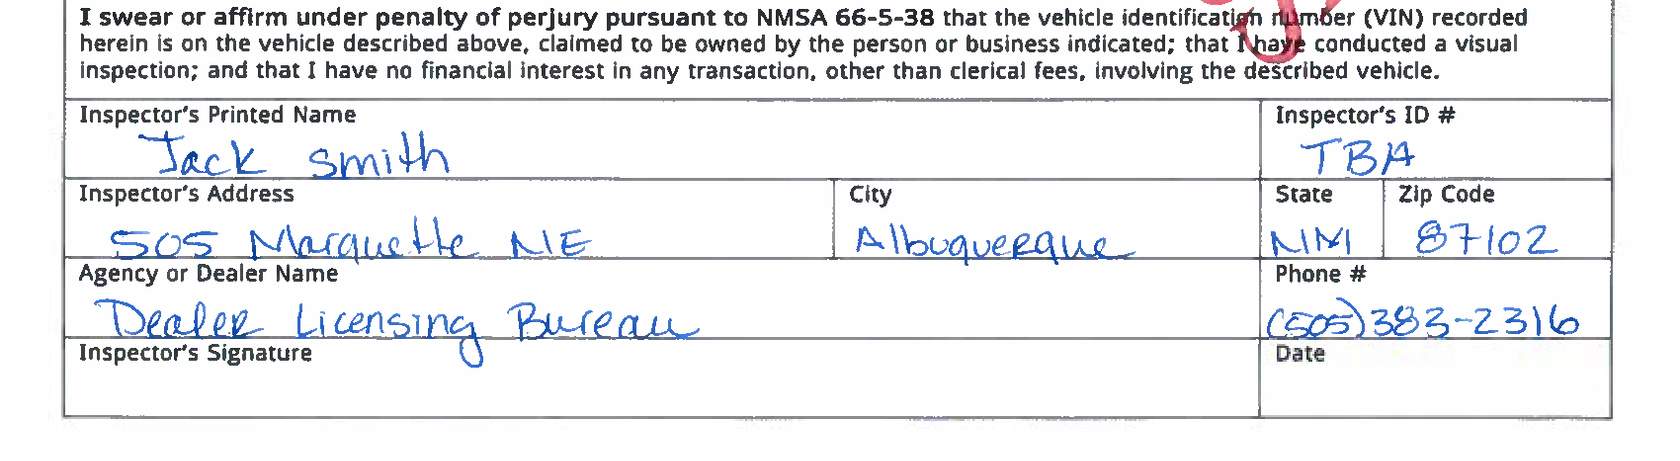 I swear or affirm under penalty of perjury pursuant to NMSA 66-5-38 that the vehicle identification number (VIN) recorded
herein is on the vehicle described above, claimed to be owned by the person or business indicated; that I have conducted a visual
inspection; and that I have no financial interest in any transaction, other than clerical fees, involving the described vehicle.
Inspector's Printed Name Inspector's ID #
Jack Smith TBA
Inspector's Address City State Zip Code
505 Marquette NE Albuquerque NM 87102
Agency or Dealer Name Phone #
Dealer Licensing Bureau (505)383-2316
Inspector's Signature Date